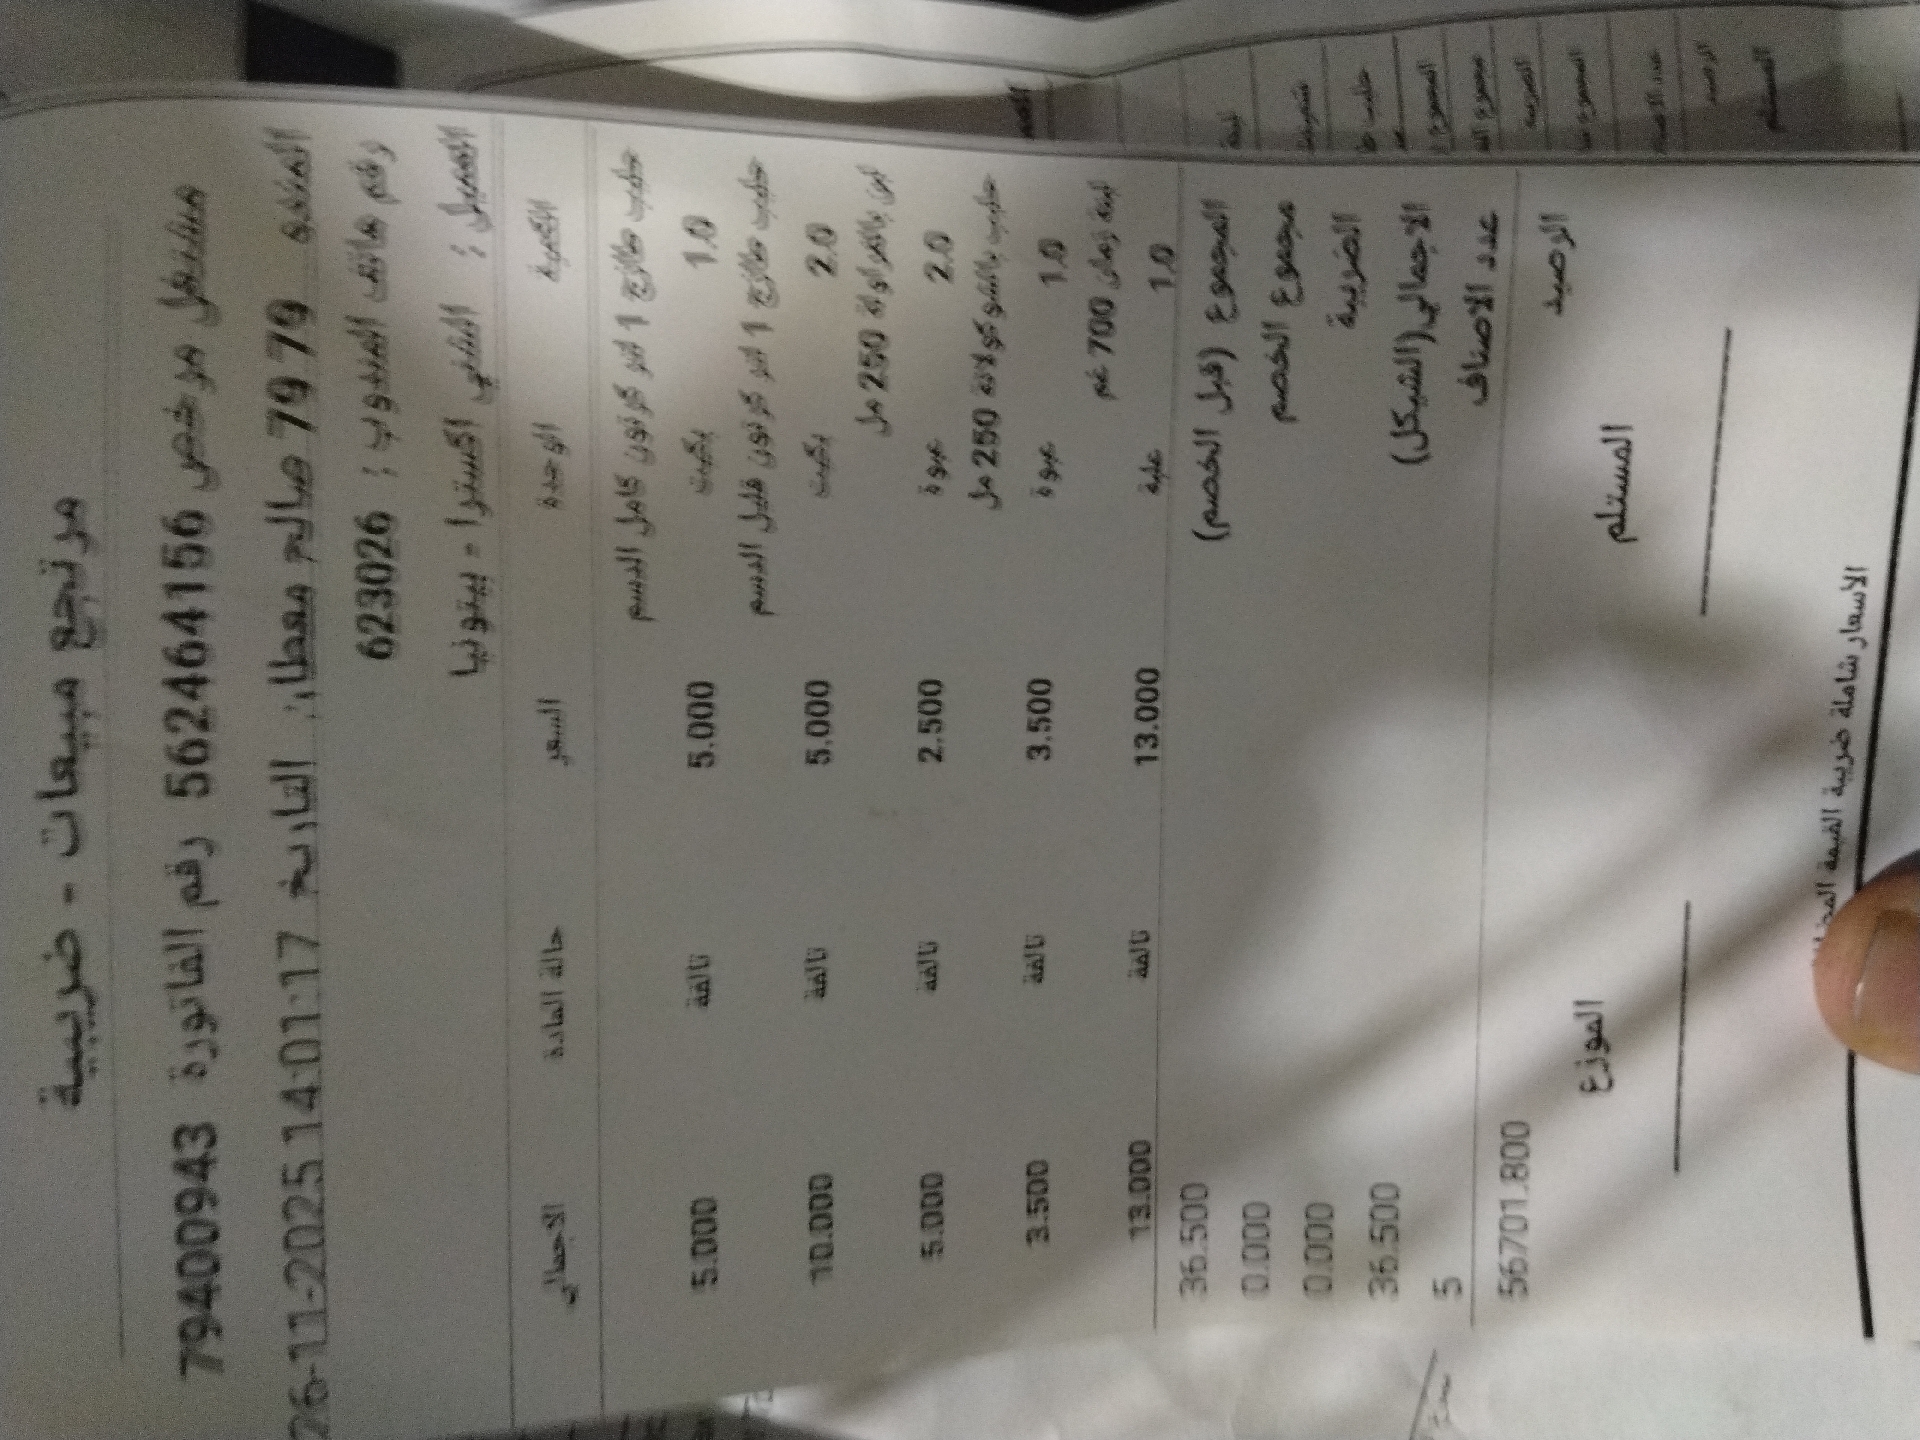 مرتجع مبيعات - ضريبية
مشتغل مرخص 562464156 رقم الفاتورة 79400943
79 79 صالح معطان التاريخ 26-11-2025 14:01:17
رقم هاتف المندوب : 623026
العميل : الشني اكسترا - بيتونيا
الكمية الوحدة السعر حالة المادة الاجمالي
حليب طازج 1 لتر كرتون كامل الدسم
1.0 بكيت 5.000 تالفة 5.000
حليب طازج 1 لتر كرتون قليل الدسم
2.0 بكيت 5.000 تالفة 10.000
لبن بالفراولة 250 مل
2.0 عبوة 2.500 تالفة 5.000
حليب بالشوكولاتة 250 مل
1.0 عبوة 3.500 تالفة 3.500
لبنة 700 غم
1.0 علبة 13.000 تالفة 13.000
المجموع (قبل الخصم) 36.500
مجموع الخصم 0.000
الضريبة 0.000
الاجمالي(الشيكل) 36.500
عدد الاصناف 5
الرصيد 56701.800
المستلم الموزع
الاسعار شاملة ضريبة القيمة